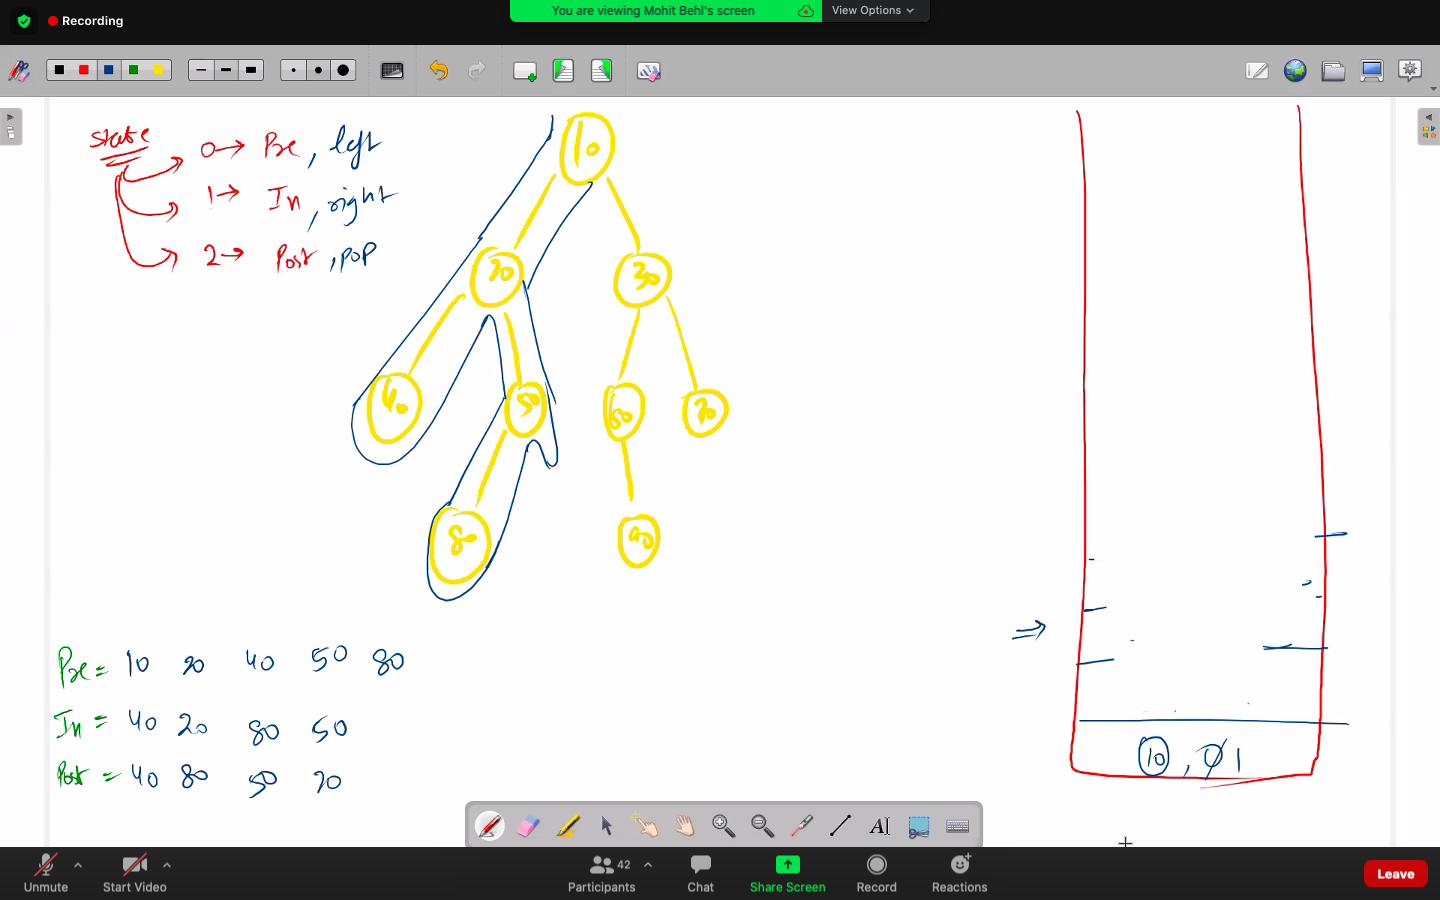 Recording
You are viewing Mohit Behl's screen
View Options
state
0→ Pre, left
1→ In, right
2→ Post, pop
10
20
30
40
50
60
70
80
90
Pre = 10 20 40 50 80
In = 40 20 80 50
Post = 40 80 50 20
⇒
10, 0 1
Unmute
Start Video
42
Participants
Chat
Share Screen
Record
Reactions
Leave